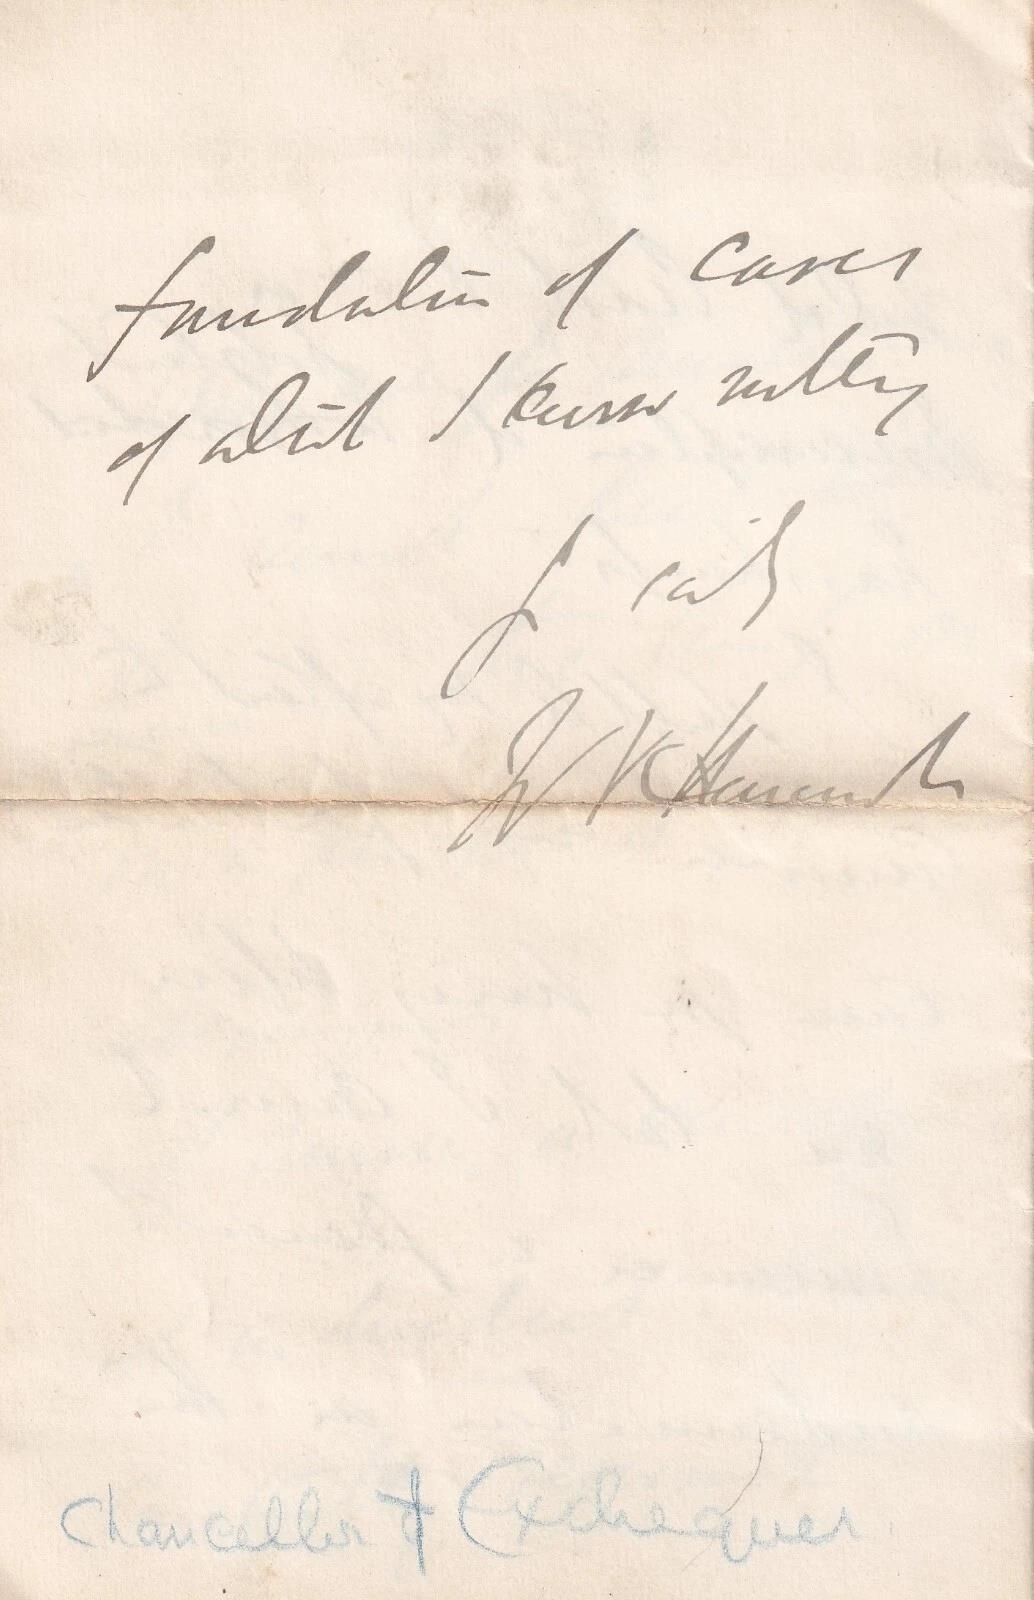 foundation of cases
of which I know nothing
Yrs truly
W V Harcourt
Chancellor of Exchequer.